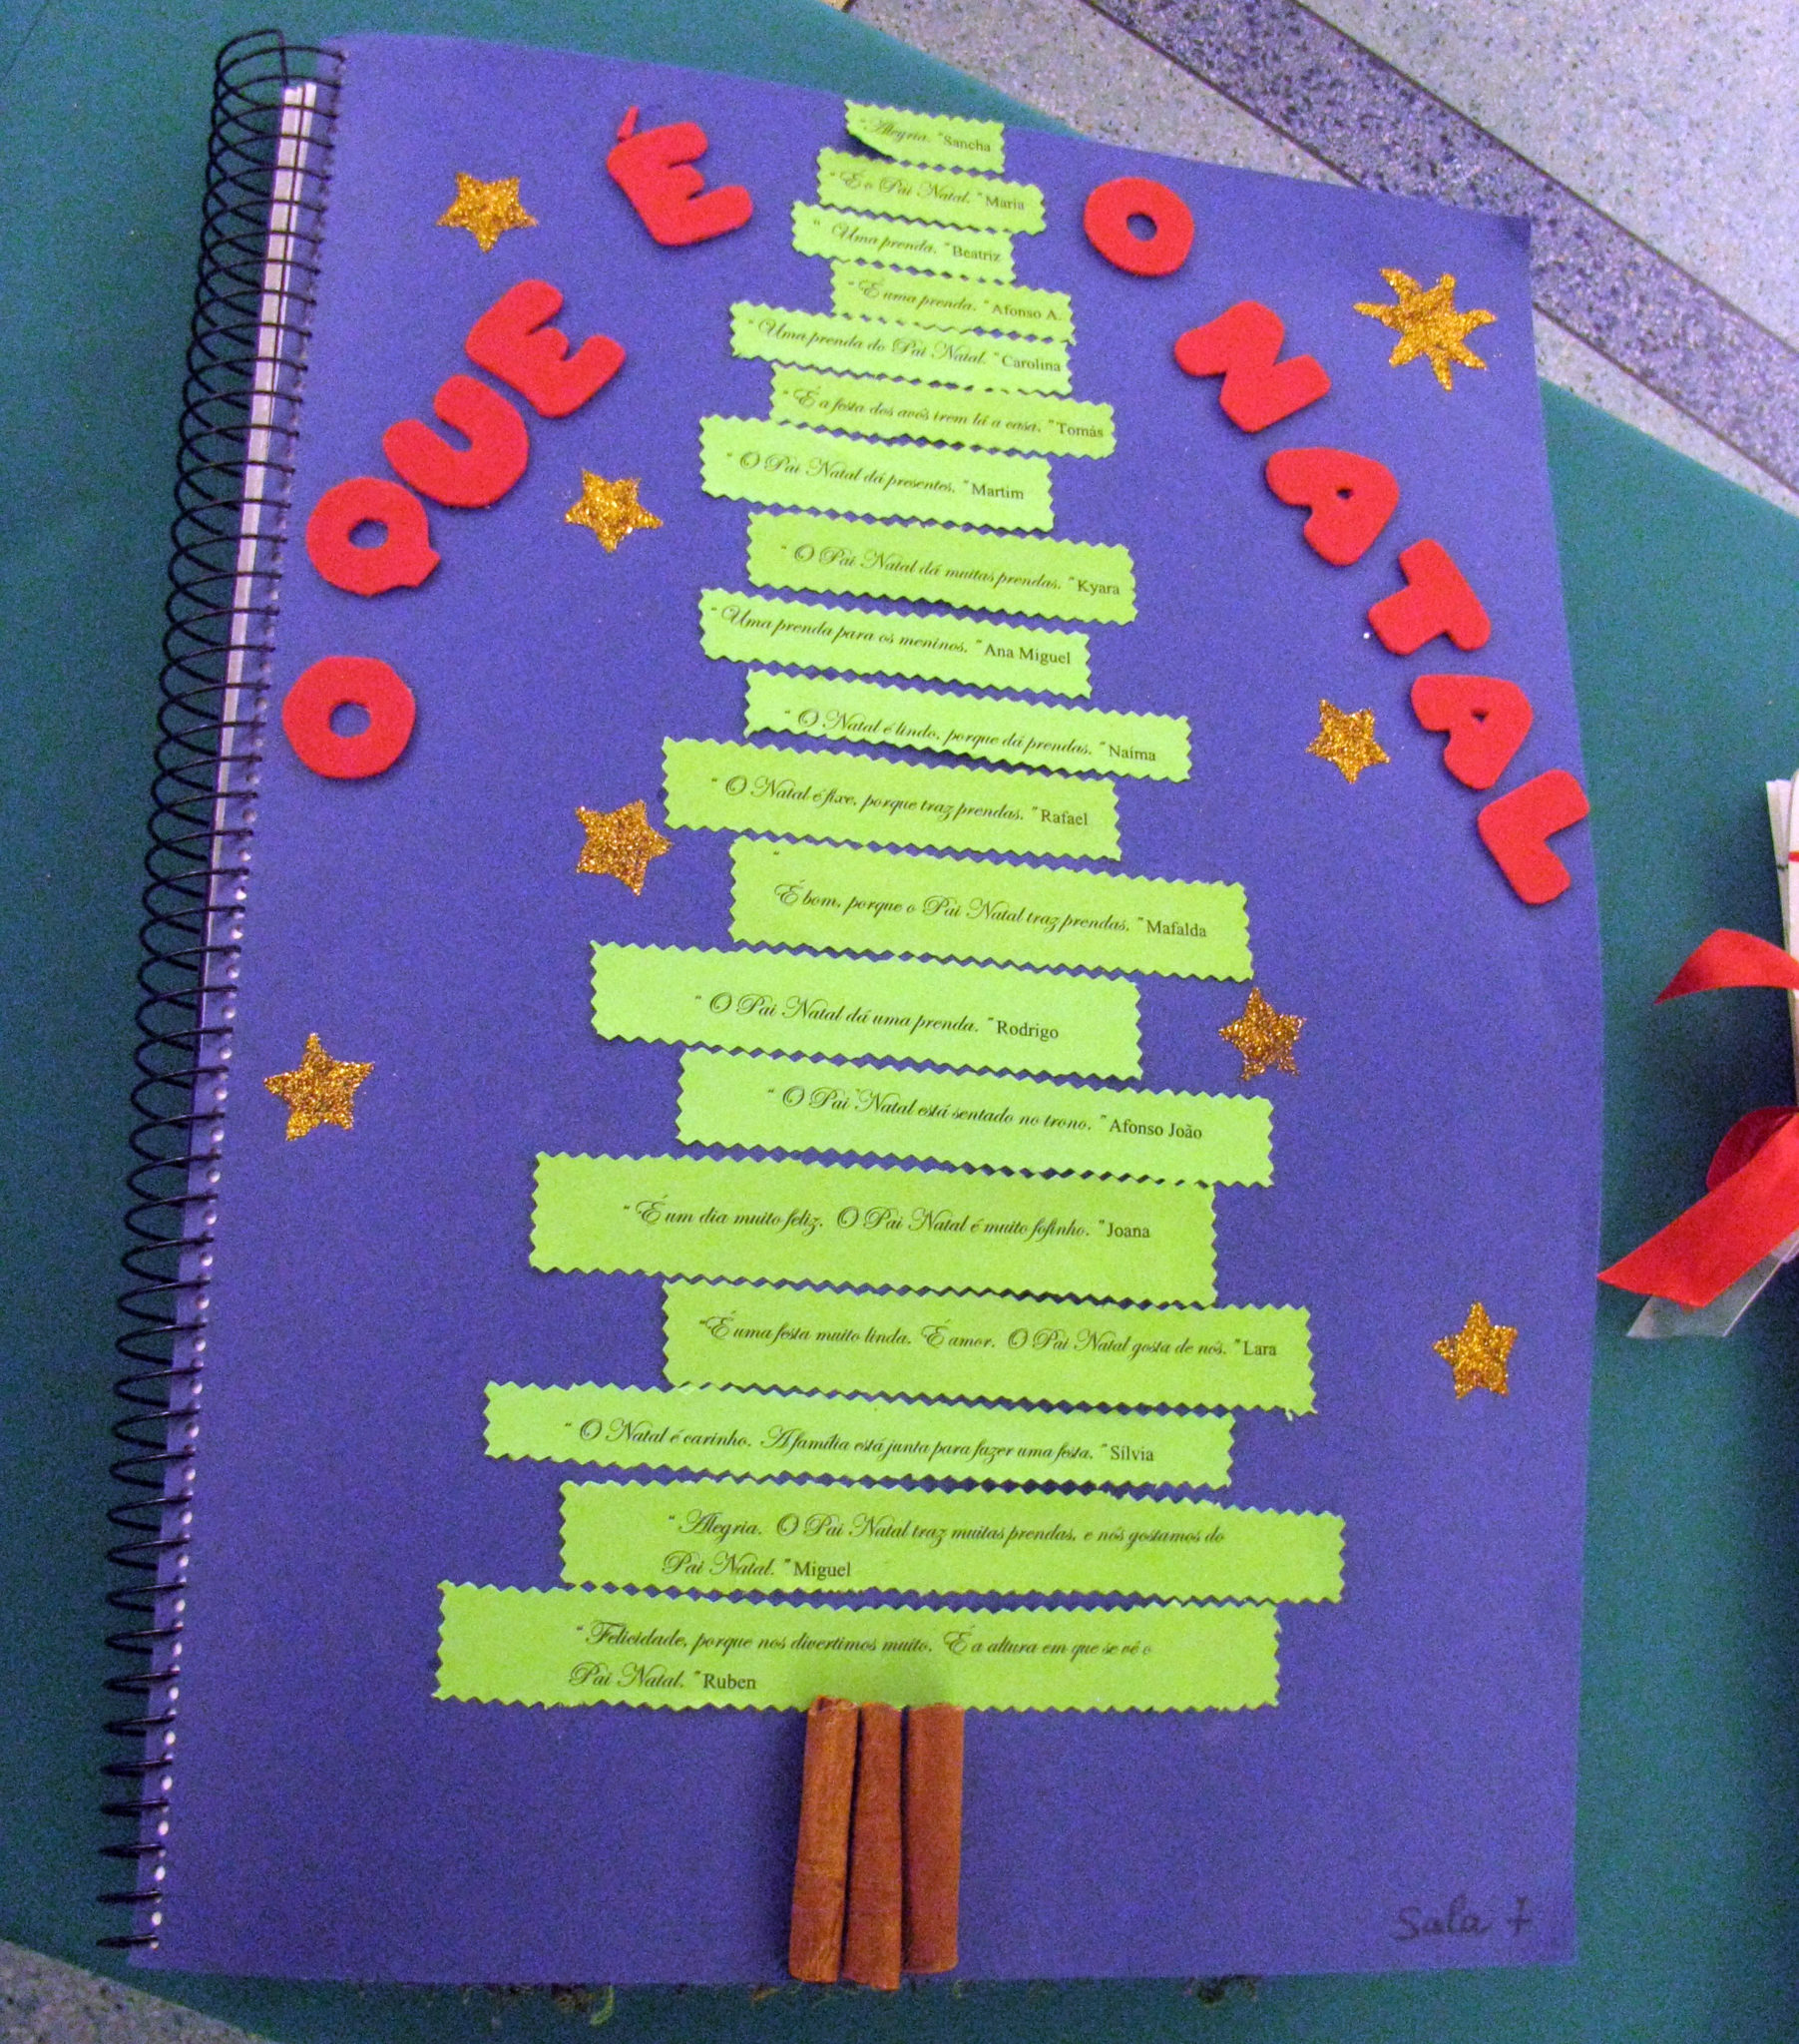 O QUE É O NATAL
"Alegria." Sancha
"É o Pai Natal." Maria
"Uma prenda." Beatriz
"É uma prenda." Afonso A.
"Uma prenda do Pai Natal." Carolina
"É a festa dos avós irem lá a casa." Tomás
"O Pai Natal dá presentes." Martim
"O Pai Natal dá muitas prendas." Kyara
"Uma prenda para os meninos." Ana Miguel
"O Natal é lindo, porque dá prendas." Naíma
"O Natal é fixe, porque traz prendas." Rafael
"É bom, porque o Pai Natal traz prendas." Mafalda
"O Pai Natal dá uma prenda." Rodrigo
"O Pai Natal está sentado no trono." Afonso João
"É um dia muito feliz. O Pai Natal é muito fofinho." Joana
"É uma festa muito linda. É amor. O Pai Natal gosta de nós." Lara
"O Natal é carinho. A família está junta para fazer uma festa." Sílvia
"Alegria. O Pai Natal traz muitas prendas, e nós gostamos do
Pai Natal." Miguel
"Felicidade, porque nos divertimos muito. É a altura em que se vê o
Pai Natal." Ruben
Sala 7